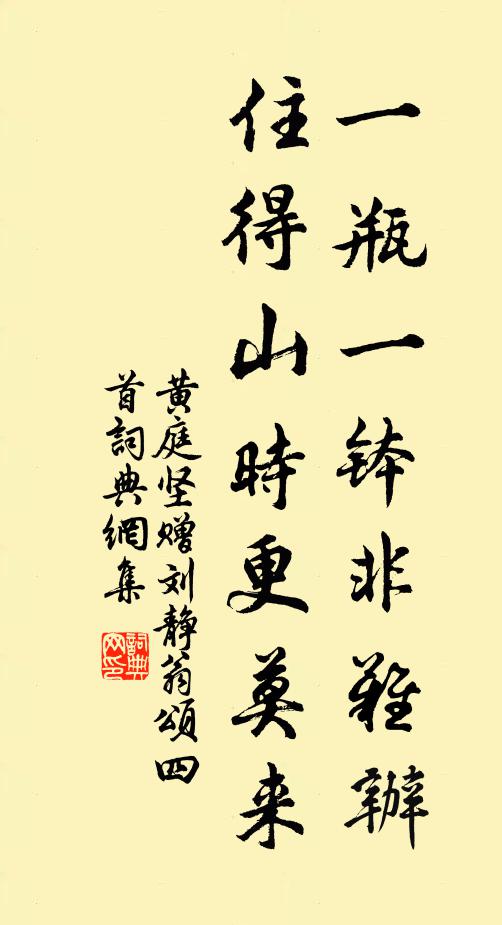 一瓶一钵非難辦
住得山時更莫来
黄庭坚赠刘静翁頌四
首詞典網集
詞典网印